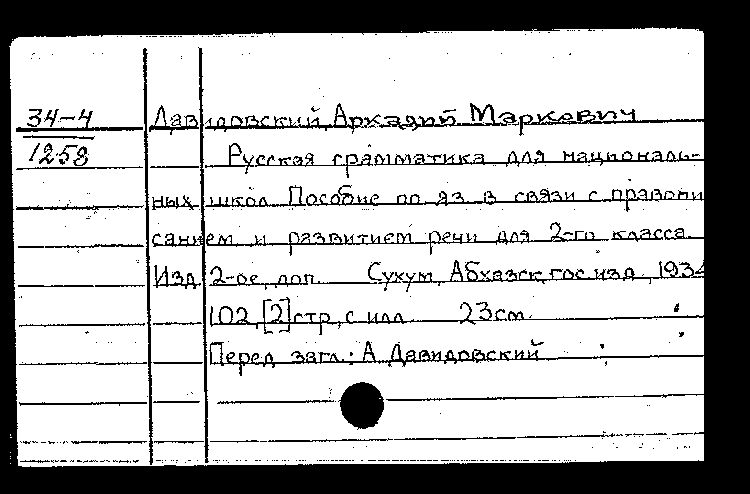 34-4
1258
Давидовский, Аркадий Маркович
Русская грамматика для националь-
ных школ. Пособие по яз. в связи с правопи
санием и развитием речи для 2-го класса.
Изд. 2-ое, доп. Сухум, Абхазск. гос. изд., 1934
102, [2] стр., с илл. 23см.
Перед загл.: А. Давидовский